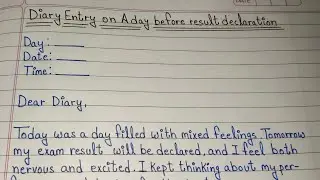 Diary Entry on A day before result declaration
Day:
Date:
Time:
Dear Diary,
Today was a day filled with mixed feelings. Tomorrow
my exam result will be declared, and I feel both
nervous and excited. I kept thinking about my per-